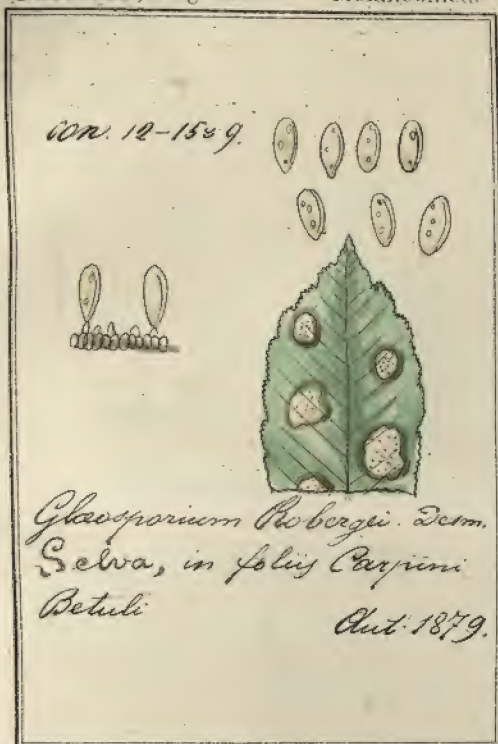 con. 12-15 ≈ 9.
Glœosporium Robergei. Desm.
Selva, in foliis Carpini
Betuli
Aut: 1879.